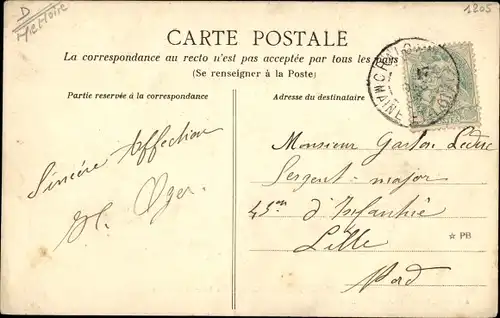 D
1205
CARTE POSTALE
La correspondance au recto n'est pas acceptée par tous les pays
(Se renseigner à la Poste)
Partie reservée à la correspondance
Adresse du destinataire
Sincère Affection
H. Oger.
Monsieur Gaston Leduc
Sergent-major
43em d'Infantrie
Lille
Nord
☆ PB